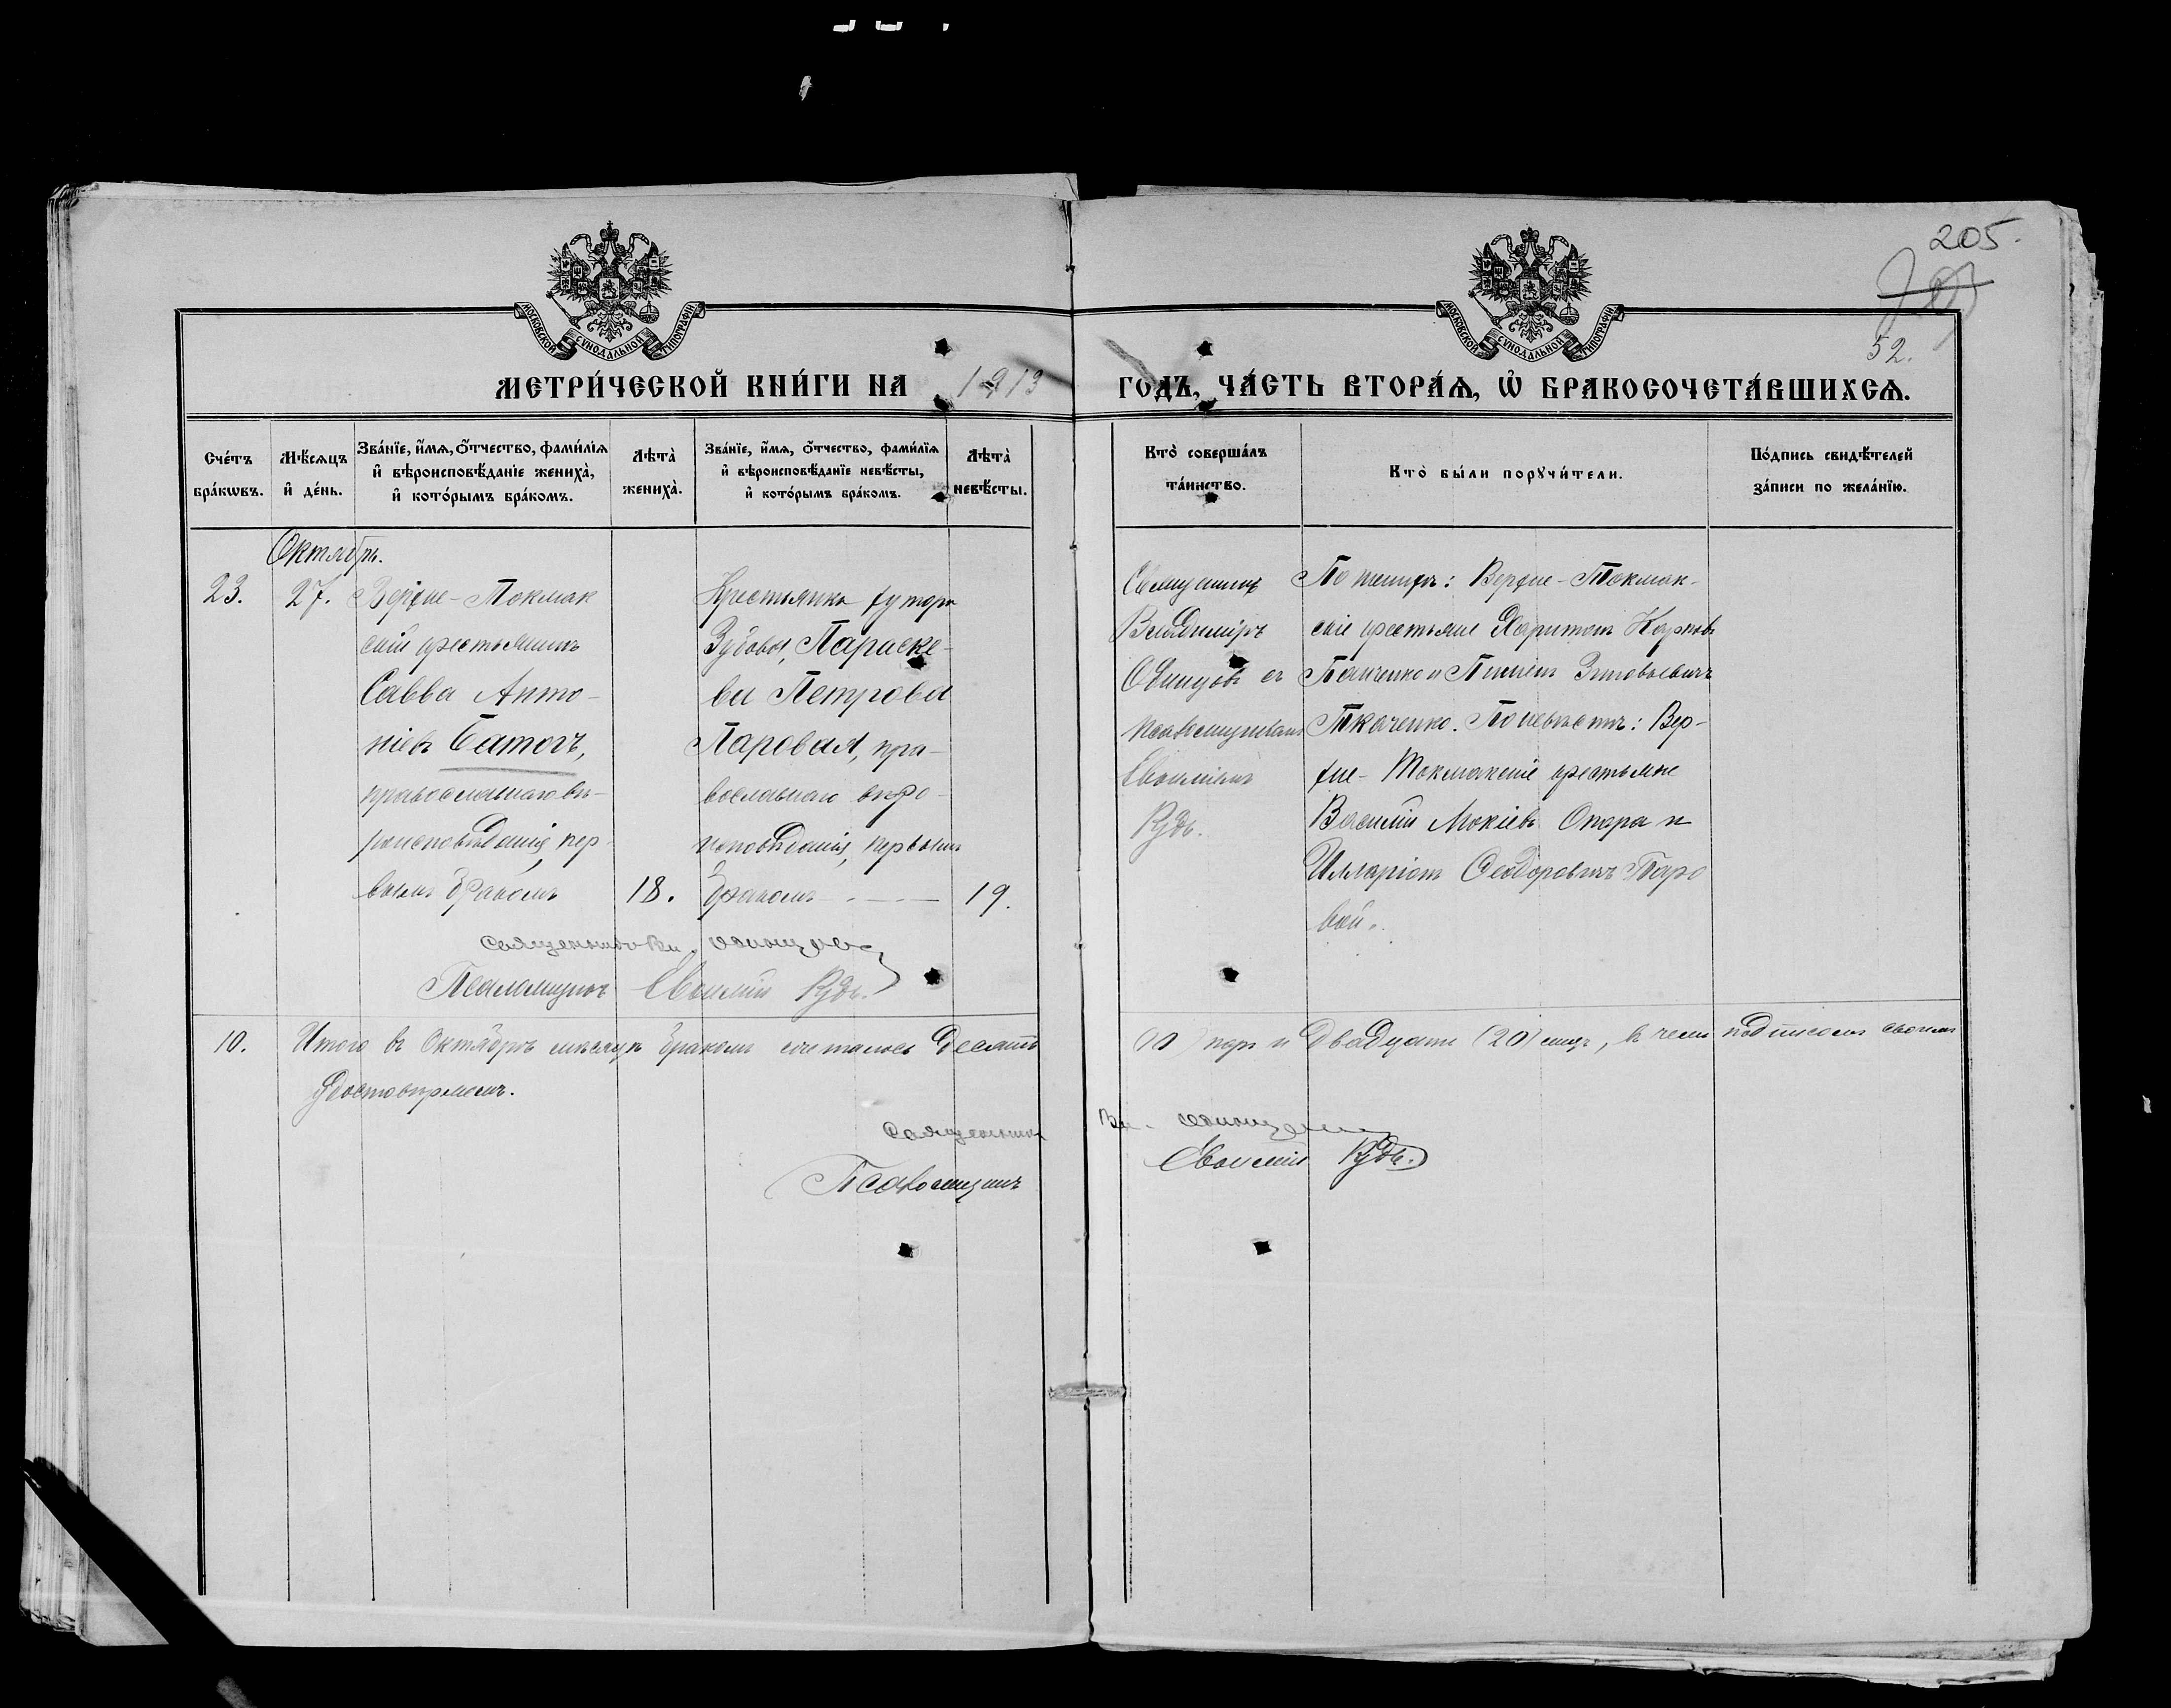 205.
52.
МОСКОВСКОЙ СѴНОДАЛЬНОЙ ТИПОГРАФІИ
МОСКОВСКОЙ СѴНОДАЛЬНОЙ ТИПОГРАФІИ
МЕТРИ́ЧЕСКОЙ КНИ́ГИ НА 1913 ГОДЪ, ЧА́СТЬ ВТОРА́Ѧ, Ѡ҆ БРАКОСОЧЕТА́ВШИХСѦ.
Сче́тъ
бра́кѡвъ.
Мѣ́сѧцъ
и҆ де́нь.
Зва́нїе, и҆́мѧ, ѻ҆́тчество, фами́лїѧ
и҆ вѣроисповѣ́данїе жениха̀,
и҆ кото́рымъ бра́комъ.
Лѣта̀
жениха̀.
Зва́нїе, и҆́мѧ, ѻ҆́тчество, фами́лїѧ
и҆ вѣроисповѣ́данїе невѣ́сты,
и҆ кото́рымъ бра́комъ.
Лѣта̀
невѣ́сты.
Кто̀ соверша́лъ
та́инство.
Кто̀ бы́ли порꙋчи́тели.
По́дпись свидѣ́телей
за́писи по жела́нїю.
Октябрь.
23.
27.
Верхне-Токмак
скій крестьянинъ
Савва Анто-
ніевъ Батогъ,
православнаго вѣ-
роисповѣданія, пер-
вымъ бракомъ
18.
Крестьянка хутора
Зубова, Параске-
ва Петрова
Паровая, пра-
вославнаго вѣро-
исповѣданія, первымъ
бракомъ
19.
Священникъ
Владиміръ
Одинцовъ съ
псаломщикомъ
Евфиміемъ
По женихѣ: Верхне-Токмак-
скіе крестьяне Харитонъ Карповъ
Панченко и Пименъ Зиновьевичъ
Ткаченко. По невѣстѣ: Вер-
хне-Токмакскіе крестьяне
Василій Мокіевъ Опара и
Илларіонъ Ѳеодоровичъ Паро
вой.
Священникъ Вл. Одинцовъ
Псаломщикъ Евфимій
10.
Итого въ Октябрѣ мѣсяцѣ бракомъ сочеталось десять (10) паръ и двадцать (20) лицъ, въ чемъ подписомъ своимъ
удостовѣряемъ.
Священникъ Вл. Одинцовъ
Псаломщикъ Евфимій